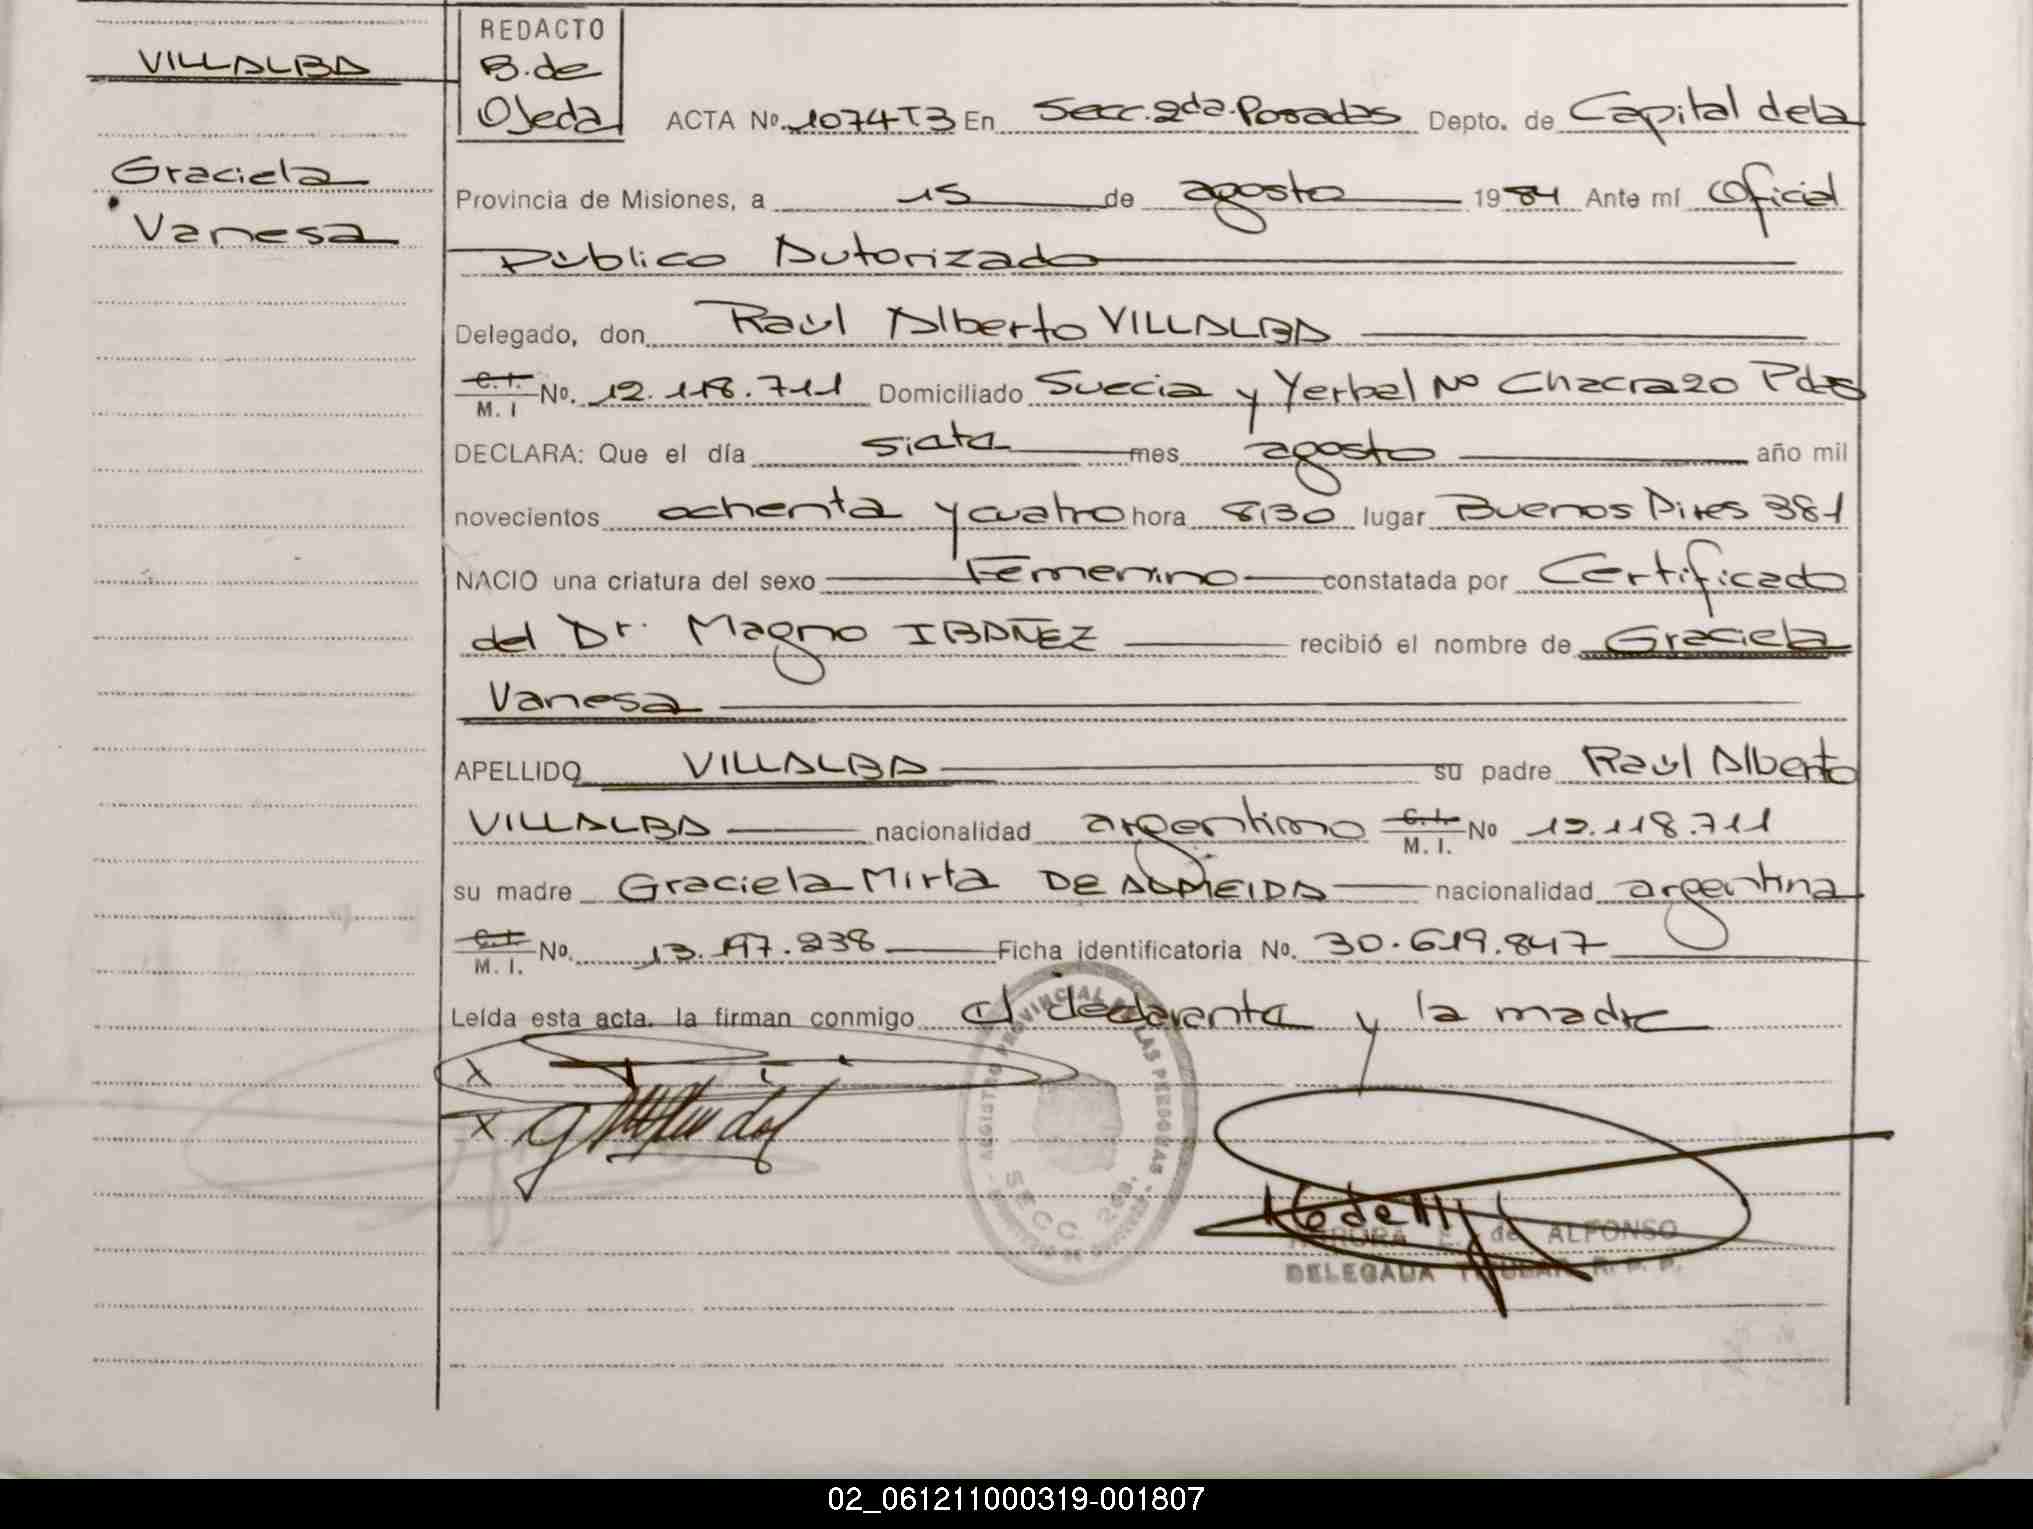 VILLALBA
Graciela
Vanesa
REDACTO
B. de
Ojeda
ACTA Nº 1074 T3 En Secc. 2da. Posadas Depto. de Capital de la
Provincia de Misiones, a 15 de agosto 1984 Ante mí Oficial
Público Autorizado
Delegado, don Raúl Alberto VILLALBA
C. I. M. I Nº. 12.118.711 Domiciliado Suecia y Yerbal Nº Chacra 20 Pdas
DECLARA: Que el día siete mes agosto año mil
novecientos ochenta y cuatro hora 8,30 lugar Buenos Aires 381
NACIO una criatura del sexo Femenino constatada por Certificado
del Dr. Magno IBAÑEZ recibió el nombre de Graciela
Vanesa
APELLIDO VILLALBA su padre Raúl Alberto
VILLALBA nacionalidad argentino C. I. M. I. Nº 12.118.711
su madre Graciela Mirta DE ALMEIDA nacionalidad argentina
C. I. M. I. Nº. 13.197.238 Ficha identificatoria Nº. 30.619.847
Leída esta acta, la firman conmigo el declarante y la madre
X
X
REGISTRO PROVINCIAL DE LAS PERSONAS
SECC. 2da.
AURORA E. de ALFONSO
DELEGADA TITULAR R. P. P.
02_061211000319-001807